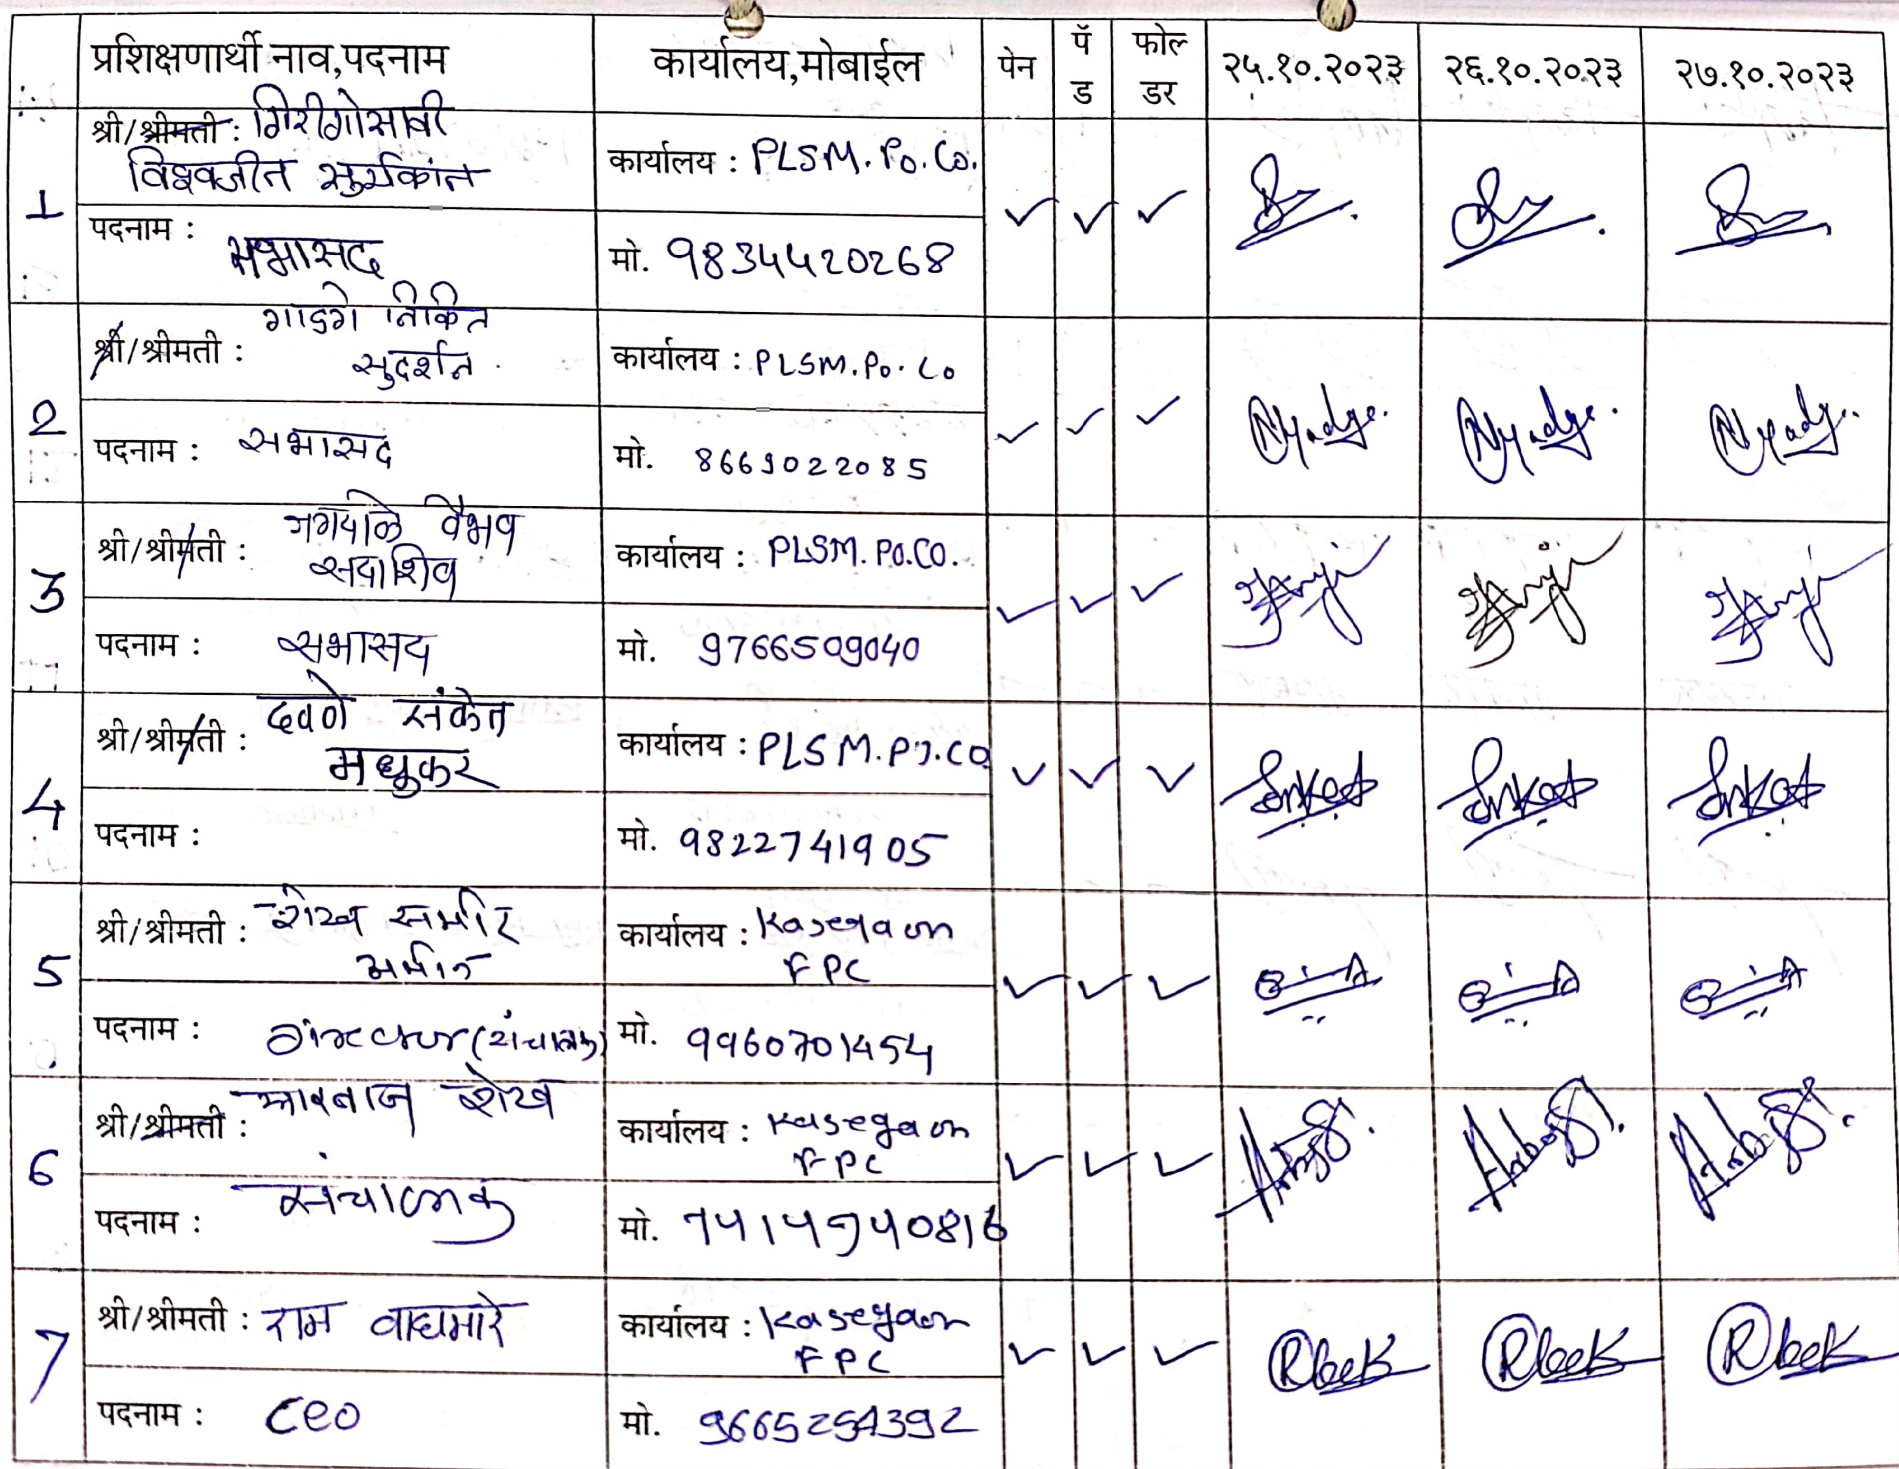 प्रशिक्षणार्थी नाव,पदनाम कार्यालय,मोबाईल पेन पॅड फोल्डर २५.१०.२०२३ २६.१०.२०२३ २७.१०.२०२३
1 श्री/श्रीमती : गिरीगोसावी
विश्वजीत सुर्यकांत
कार्यालय : PLSM. Po. Co.
पदनाम : सभासद
मो. 9834420268
2 श्री/श्रीमती : गाडगे निकित
सुदर्शन
कार्यालय : PLSM. Po. Co
पदनाम : सभासद
मो. 8669022085
3 श्री/श्रीमती : जगदाळे वैभव
सदाशिव
कार्यालय : PLSM. PO.CO.
पदनाम : सभासद
मो. 9766509040
4 श्री/श्रीमती : दवणे संकेत
मधुकर
कार्यालय : PLSM.PO.CO.
पदनाम :
मो. 9822741905
5 श्री/श्रीमती : शेख समीर
अमीन
कार्यालय : Kasegaon
FPC
पदनाम : director (संचालक)
मो. 9960701454
6 श्री/श्रीमती : आरबाज शेख
कार्यालय : Kasegaon
FPC
पदनाम : संचालक
मो.
7 श्री/श्रीमती : राम वाघमारे
कार्यालय : Kasegaon
FPC
पदनाम : CEO
मो. 9665254392